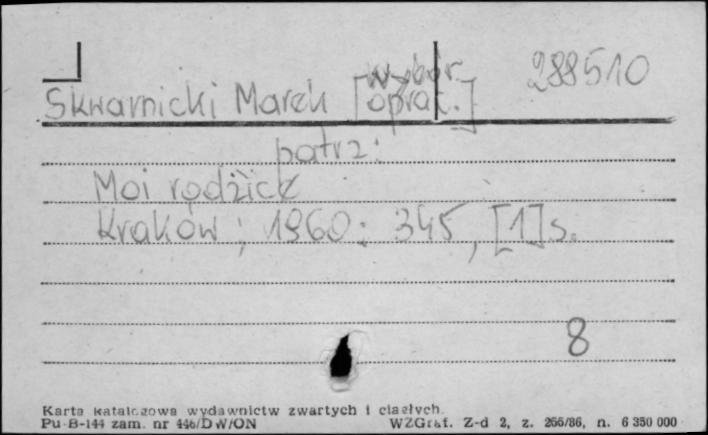 wybór 288510
Skwarnicki Marek [oprac.]
patrz:
Moi rodzice
Kraków; 1960: 345, [1] s.
8
Karta katalogowa wydawnictw zwartych i ciągłych.
Pu-B-144 zam. nr 446/DW/ON WZGraf. Z-d 2, z. 266/86, n. 6 350 000